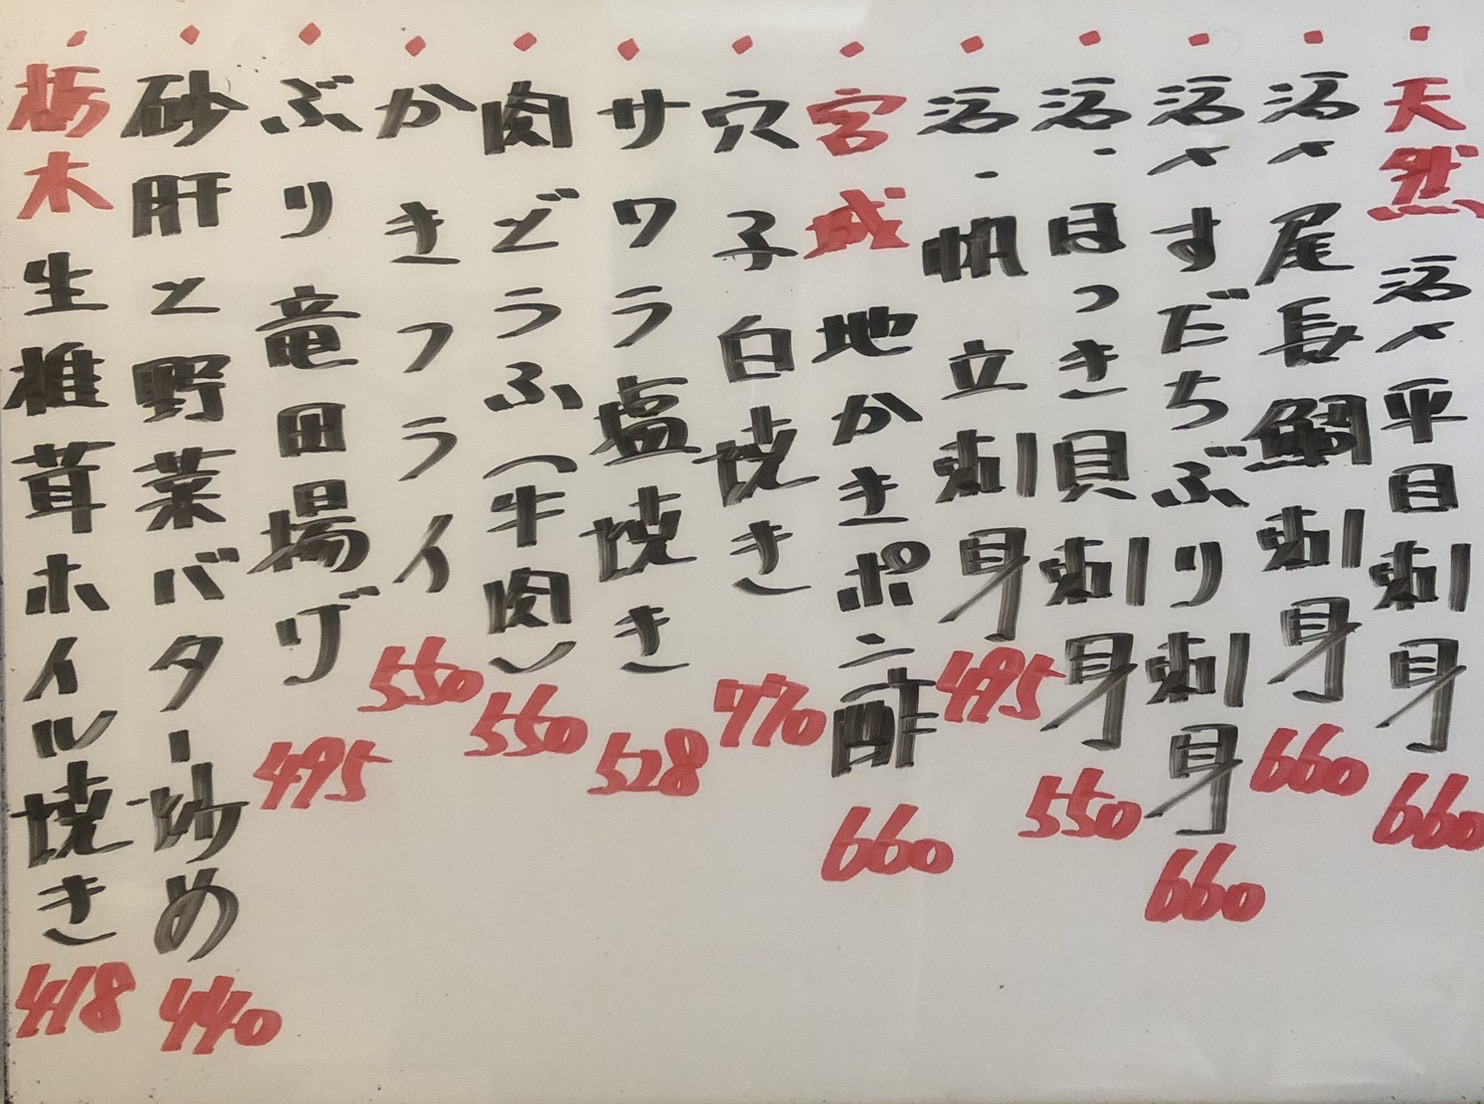 ・天然 活〆平目刺身 660
・活〆尾長鯛刺身 660
・活〆すだちぶり刺身 660
・活・ほっき貝刺身 550
・活・帆立刺身 495
・宮城 地かきポン酢 660
・穴子白焼き 770
・サワラ塩焼き 528
・肉どうふ(牛肉) 550
・かきフライ 550
・ぶり竜田揚げ 495
・砂肝と野菜バター炒め 440
・栃木 生椎茸ホイル焼き 418